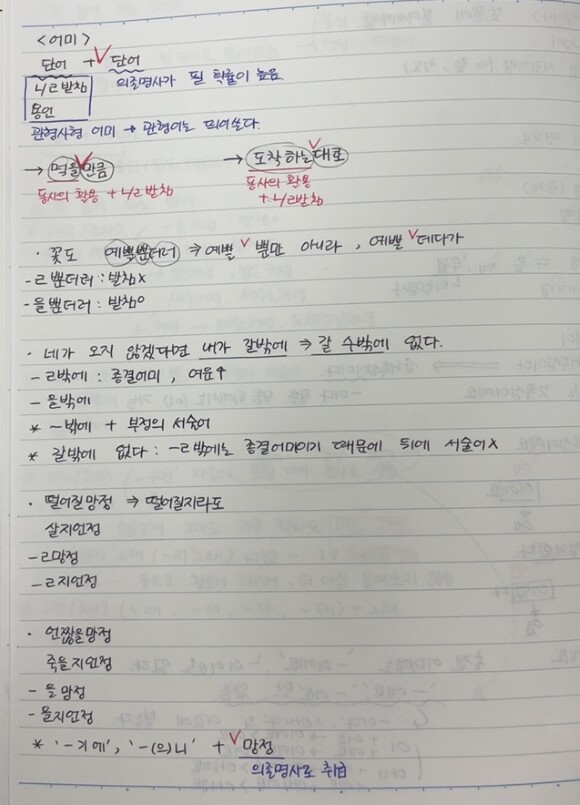 <어미>
단어 +∨단어
ㄴ/ㄹ받침 의존명사가 될 확률이 높음
용언
관형사형 어미 → 관형어는 띄어쓴다.
→ 먹을∨만큼 → 도착하는∨대로
동사의 활용 + ㄴ/ㄹ받침 동사의 활용
+ ㄴ/ㄹ받침
· 꽃도 예쁠뿐더러 ⇒ 예쁠∨뿐만 아니라, 예쁠∨데다가
-ㄹ뿐더러 : 받침x
-을뿐더러 : 받침o
· 네가 오지 않겠다면 내가 갈밖에 ⇒ 갈 수밖에 없다.
-ㄹ밖에 : 종결어미, 여운↑
-을밖에
* ~밖에 + 부정의 서술어
* 갈밖에 없다 : -ㄹ밖에는 종결어미이기 때문에 뒤에 서술어x
· 떨어질망정 ⇒ 떨어질지라도
살지언정
-ㄹ망정
-ㄹ지언정
· 언짢을망정
죽을지언정
-을망정
-을지언정
* '-기에', '-(으)니' +∨망정
의존명사로 취급